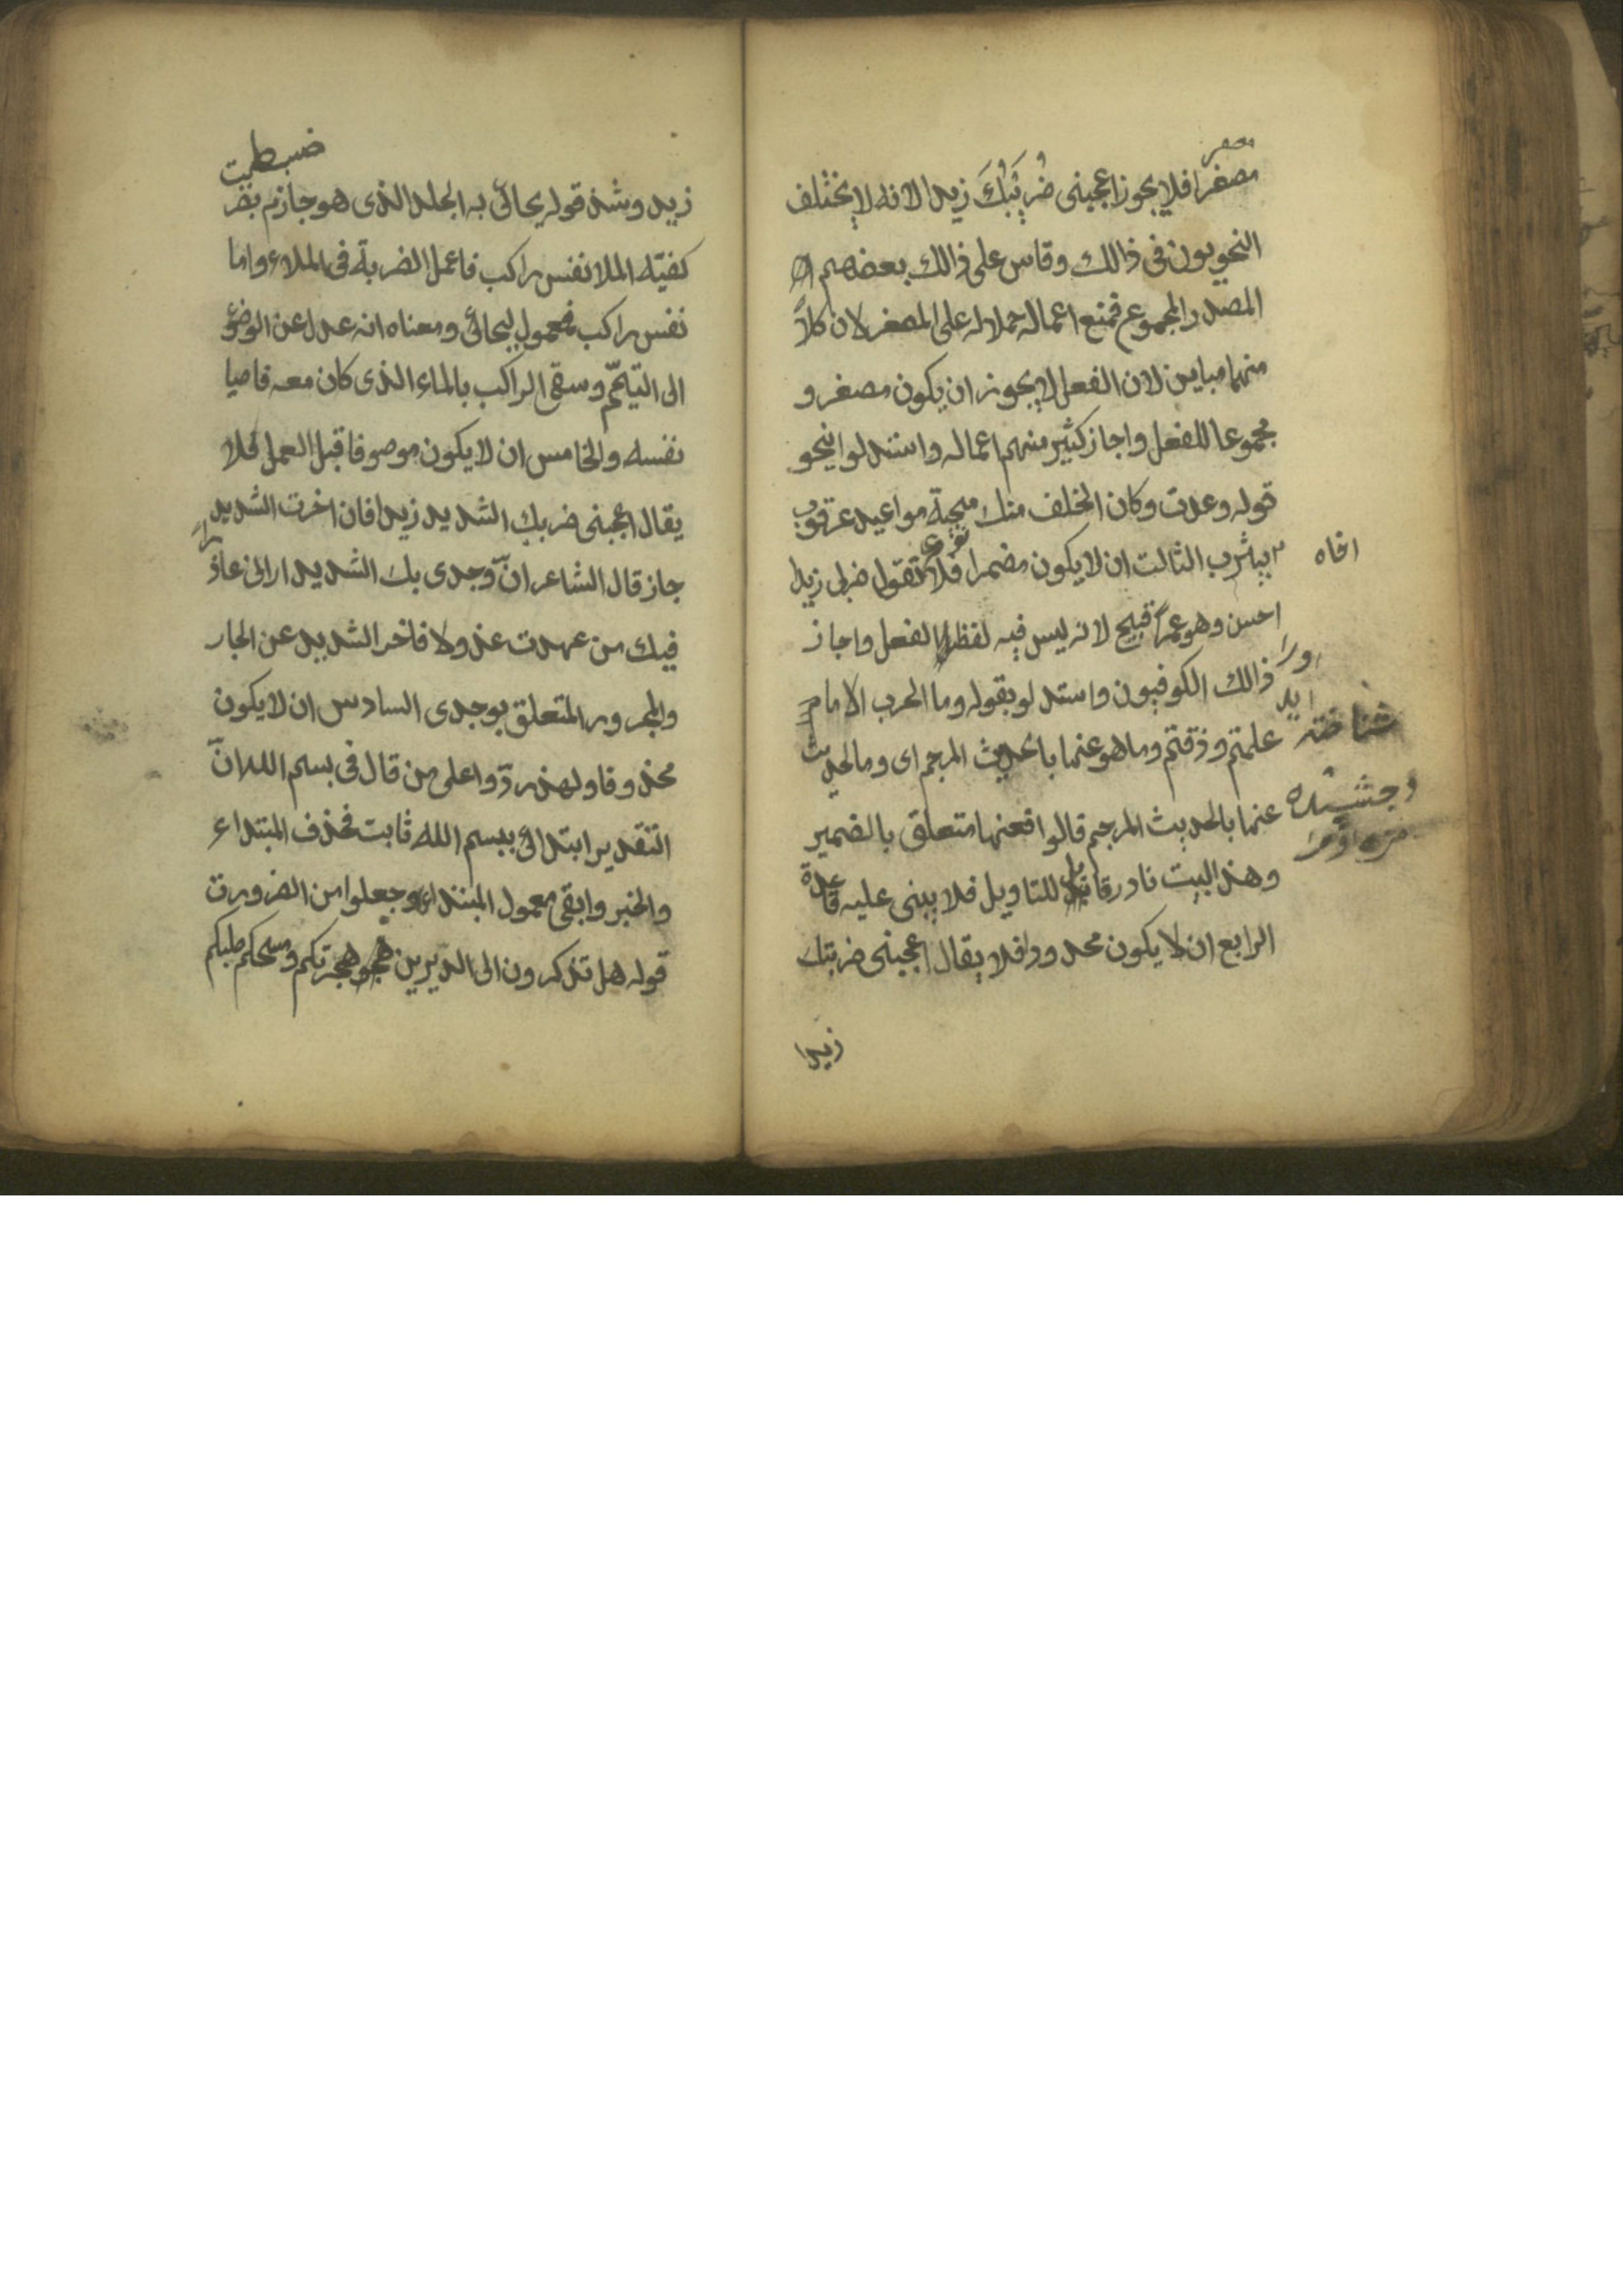 مصغر
مصغرا فلا يجوز اعجبنى ضُرَيْبُكَ زيدا لانه لا يختلف
النحويون فى ذالك وقاس على ذالك بعضهم
المصدر المجموع فمنع اعماله حملا له على المصغر لان كلاً
منهما مباين لان الفعل لا يجوز ان يكون مصغر و
مجموعا للفعل واجاز كثير منهم اعماله واستدلوا بنحو
قوله وعدت وكان الخلف منك سجية مواعيد عرقوب
اخاه
بيثرب الثالث ان لا يكون مضمرا فلا تقول ضربى زيدا
احسن وهو عمراً قبيح لانه ليس فيه لفظ الفعل واجاز
ذالك الكوفيون واستدلو بقوله وما الحرب الا ما
علمتم وذقتم وما هو عنها بالحديث المرجم اى وما الحديث
شناخته ايد
عنها بالحديث المرجم قالوا فعنها متعلق بالضمير
وچشيده
وهذ البيت نادر قابل للتاويل فلا يبنى عليه قاعدة
الرابع ان لا يكون محدودا فلا يقال اعجبنى ضربتك
زيدا
ضبطت
زيد وشذ قوله يحائى به الجلد الذى هو جازم بضر
كفيّه الملا نفس راكب فاعمل الضربة فى الملاء واما
نفس راكب فمعمول ليحائى ومعناه انه عدل عن الوضوء
الى التيمّم وسقى الراكب بالماء الذى كان معه فاحيا
نفسه والخامس ان لا يكون موصوفا قبل العمل فلا
يقال اعجبنى ضربك الشديد زيدا فان اخرت الشديد
جاز قال الشاعر انّ وجدى بك الشديد ارانى عاذراً
فيك من عهدت عذولا فاخر الشديد عن الجار
والمجرور المتعلق بوجدى السادس ان لا يكون
محذوفا ولهذ ردّوا على من قال فى بسم الله انّ
التقدير ابتدائى ببسم الله ثابت فحذف المبتداء
والخبر وابقى معمول المبتداء وجعلوا من الضرورت
قوله هل تذكرون الى الديرين هجرتكم ومسحكم صلبكم